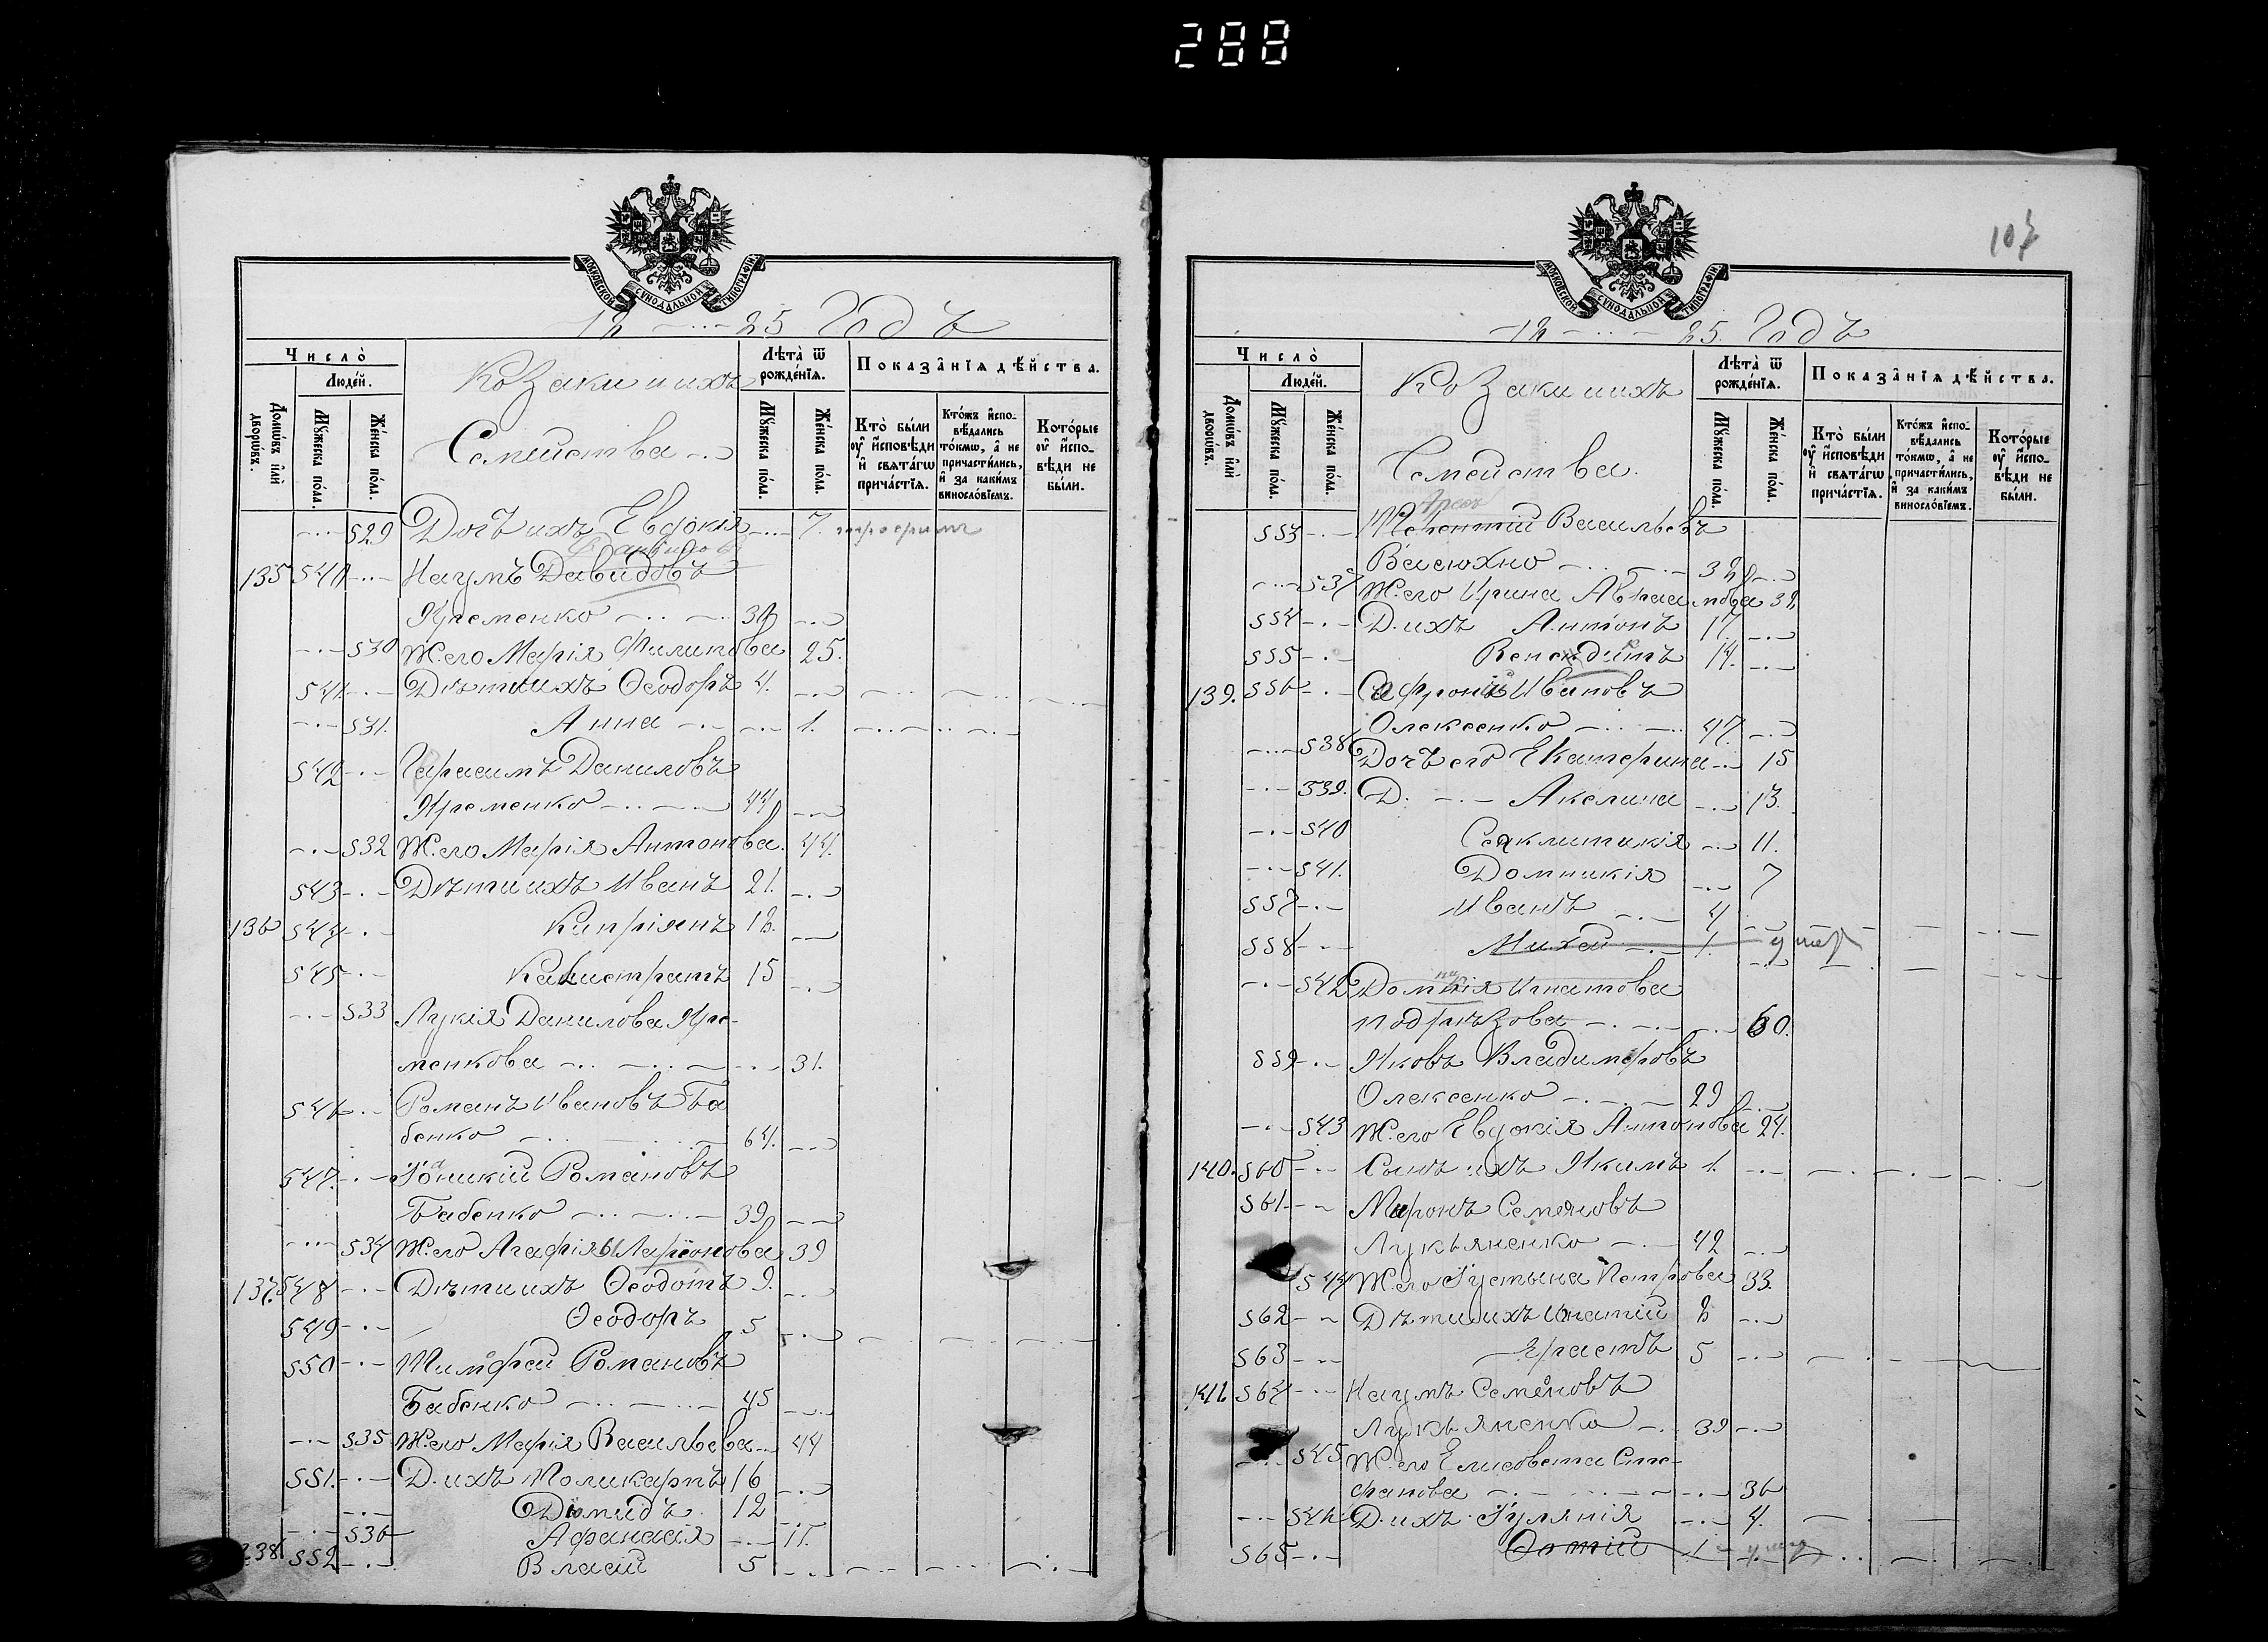 288
МОСКОВСКОЙ СѴНОДАЛЬНОЙ ТИПОГРАФІИ
25 Годъ
Число̀
Людéй.
Домѡ́въ и҆лѝ дворѡ́въ.
Мꙋ́жеска по́ла.
Же́нска по́ла.
Козаки и ихъ
Семейства
Лѣ́та ѿ рожде́нїѧ.
Мꙋ́жеска по́ла.
Же́нска по́ла.
Показа̑нїѧ дѣ́йства.
Ктò были оу҆ и҆́сповѣди и҆ свѧта́гѡ прича́стїѧ.
Кто́жъ и҆спо- вѣ́дались то́кмѡ, а҆ не причасти́лись, и҆ за каки́мъ винослóвїемъ.
Кото́рые оу҆ и҆спо- вѣди не были.
529 Дочь ихъ Евдокія 7.
135 540 Наумъ Давидовъ
Яременко 30
530 Ж. его Марія Филипова 25.
541 Дѣти ихъ Ѳеодоръ 4.
531. Анна 1.
542 Гарасимъ Даниловъ
Яременко 44
532 Ж. его Марія Антонова. 44.
543 Дѣти ихъ Иванъ 21.
136 544 Кипріянъ 18.
545 Калистратъ 15
533 Лукія Данилова Яре-
менкова 31.
546 Романъ Ивановъ Ба
бенко 64.
547. Романовъ
Бабенко 39
534 Ж. его Агафія Ларіонова 39
137. 548 Дѣти ихъ Ѳеодотъ 9.
549 Ѳеодоръ 5
550 Тимофей Романовъ
Бабенко 45
535 Ж. его Марія Васильева 44
551. Д. ихъ Поликарпъ 16
Діомидъ 12
536 Афанасія 11.
138 552 Власій 5
МОСКОВСКОЙ СѴНОДАЛЬНОЙ ТИПОГРАФІИ
25. Годъ
Число̀
Людéй.
Домѡ́въ и҆лѝ дворѡ́въ.
Мꙋ́жеска по́ла.
Же́нска по́ла.
Козаки и ихъ
Семейства.
Лѣ́та ѿ рожде́нїѧ.
Мꙋ́жеска по́ла.
Же́нска по́ла.
Показа̑нїѧ дѣ́йства.
Ктò были оу҆ и҆́сповѣди и҆ свѧта́гѡ прича́стїѧ.
Кто́жъ и҆спо- вѣ́дались то́кмѡ, а҆ не причасти́лись, и҆ за каки́мъ винослóвїемъ.
Кото́рые оу҆ и҆спо- вѣди не были.
553 Васильевъ
Васюхно 38
537 Ж. его Ирина Авраамова 38
554 Д. ихъ Антонъ 17.
555 14.
139. 556 Софронъ Ивановъ
Олексенко 47
538 Дочь его Екатерина 15
539. Д. Акелина 13.
540 11.
541. Домникія 7
557 Иванъ 4
558 Михаи 1. умер
542 Игнатова
60.
559 Яковъ Владимеровъ
Олексенко 29
543 Ж. его Евдокія Антонова 24.
140. 560 Сынъ ихъ Якимъ 1.
561 Миронъ Семеновъ
Лукьяненко 42
544 Ж. его Іустина Петрова 33.
562 Дѣти ихъ Игнатій 8
563 Ерастъ 5
141. 564 Наумъ Семеновъ
Лукьяненко 39
545 Ж. его Елисовета Сте-
фанова 36
546 Д. ихъ Іуліянія 4.
565 1